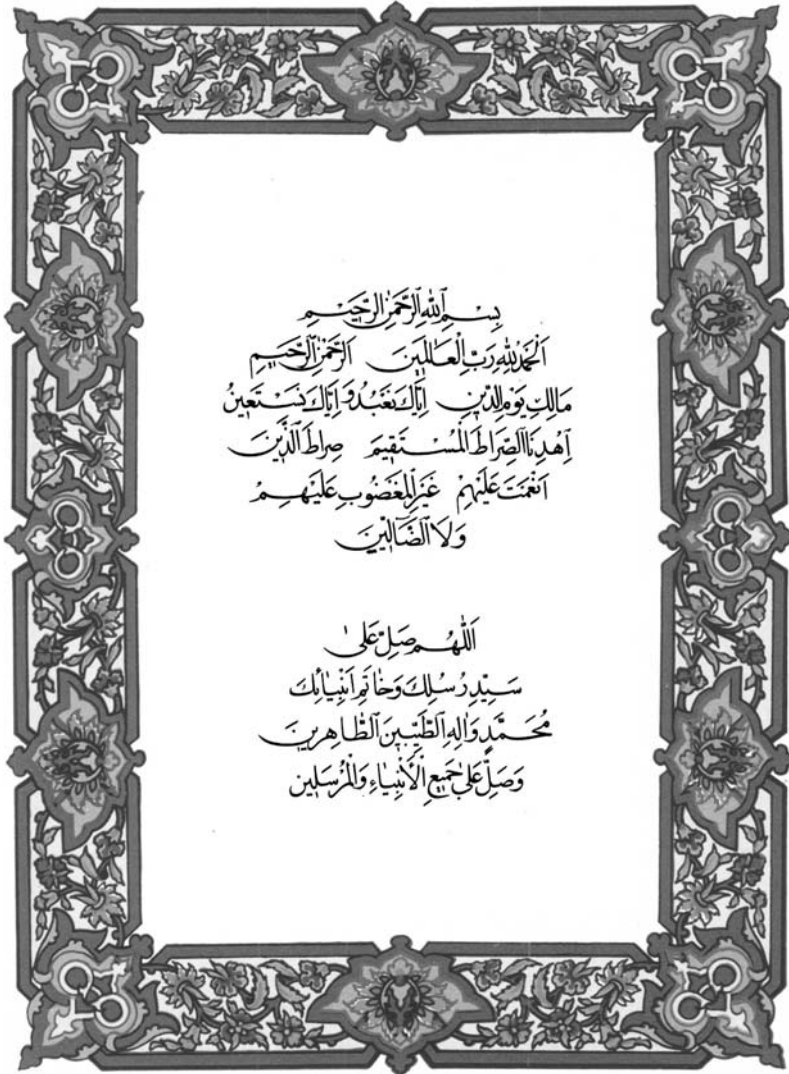 بِسْمِ ٱللّٰهِ ٱلرَّحْمٰنِ ٱلرَّحِيمِ
اَلْحَمْدُ لِلّٰهِ رَبِّ الْعَالَمِينَ اَلرَّحْمٰنِ ٱلرَّحِيمِ
مَالِكِ يَوْمِ الدِّينِ اِيَّاكَ نَعْبُدُ وَ اِيَّاكَ نَسْتَعِينُ
اَهْدِنَا ٱلصِّرَاطَ الْمُسْتَقِيمَ صِرَاطَ ٱلَّذِينَ
اَنْعَمْتَ عَلَيْهِمْ غَيْرِ الْمَغْضُوبِ عَلَيْهِمْ
وَلَا ٱلضَّآلِّينَ
اَللّٰهُمَّ صَلِّ عَلىٰ
سَيِّدِ رُسُلِكَ وَخَاتَمِ اَنْبِيٰائِكَ
مُحَمَّدٍ وَاٰلِهِ ٱلطَّيِّبِينَ ٱلطَّاهِرِينَ
وَصَلِّ عَلىٰ جَمِيعِ الْأَنْبِيٰاءِ وَالْمُرْسَلِين